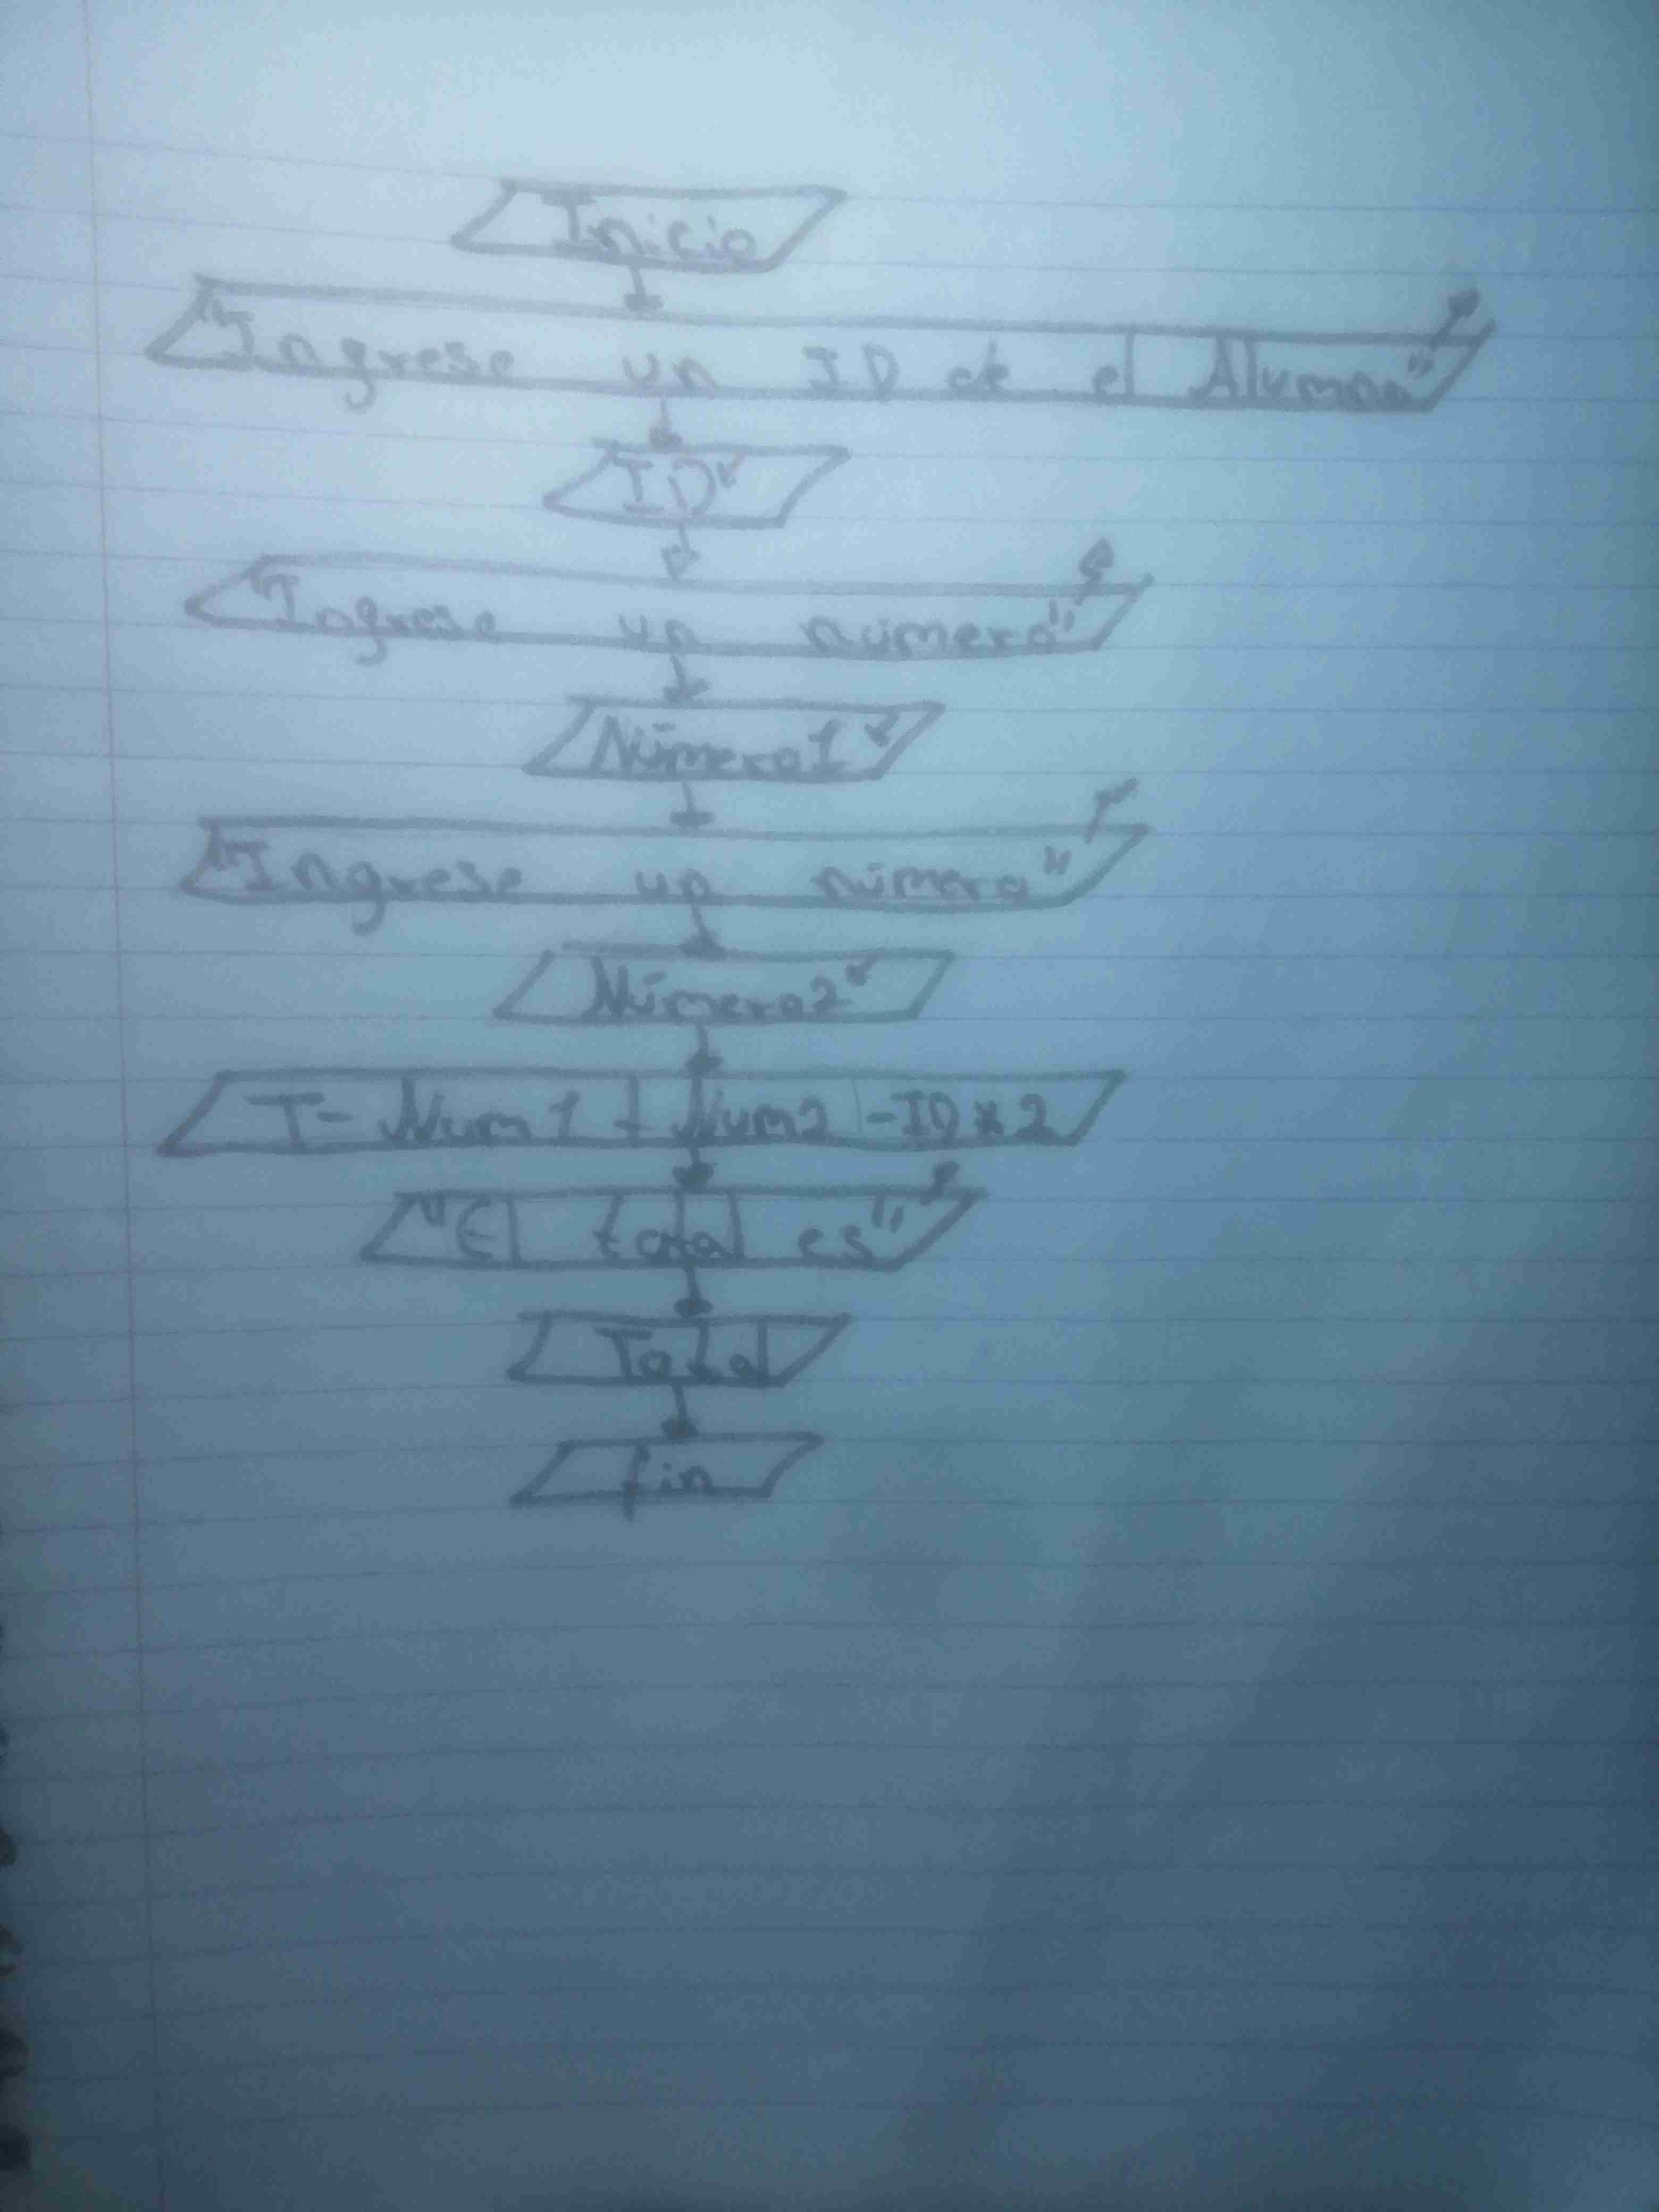 Inicio
"Ingrese un ID de el Alumno"
ID
"Ingrese un número"
Número1
"Ingrese un número"
Número2
T- Num1 + Num2 -ID*2
"El total es"
Total
fin